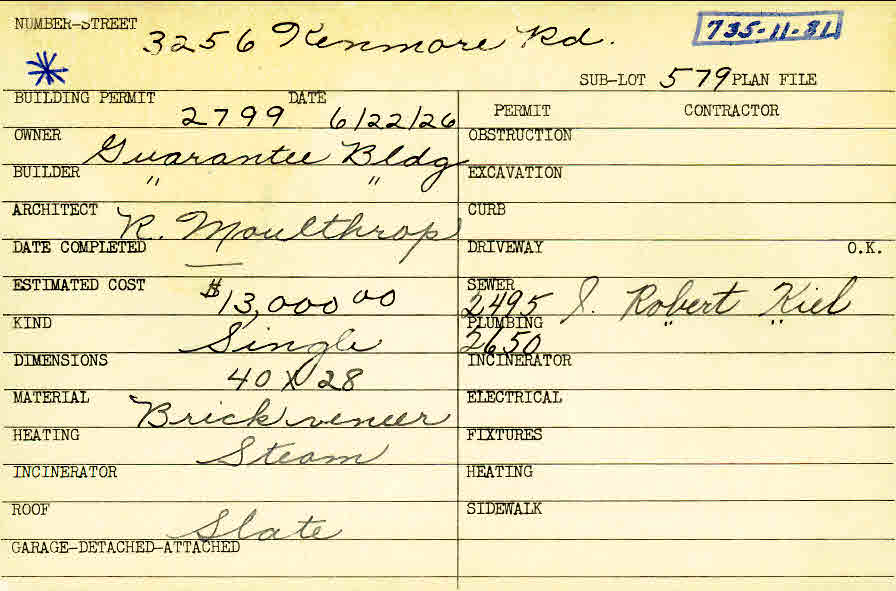 NUMBER-STREET 3256 Kenmore Rd. 735-11-81
SUB-LOT 579 PLAN FILE
BUILDING PERMIT 2799 DATE 6/22/26
PERMIT CONTRACTOR
OWNER Guarantee Bldg
OBSTRUCTION
BUILDER " "
EXCAVATION
ARCHITECT R. Moulthrop
CURB
DATE COMPLETED —
DRIVEWAY O.K.
ESTIMATED COST $13,000 00
SEWER 2495 J. Robert Kiel
KIND Single
PLUMBING 2650 " "
DIMENSIONS 40 X 28
INCINERATOR
MATERIAL Brick veneer
ELECTRICAL
HEATING Steam
FIXTURES
INCINERATOR
HEATING
ROOF Slate
SIDEWALK
GARAGE-DETACHED-ATTACHED